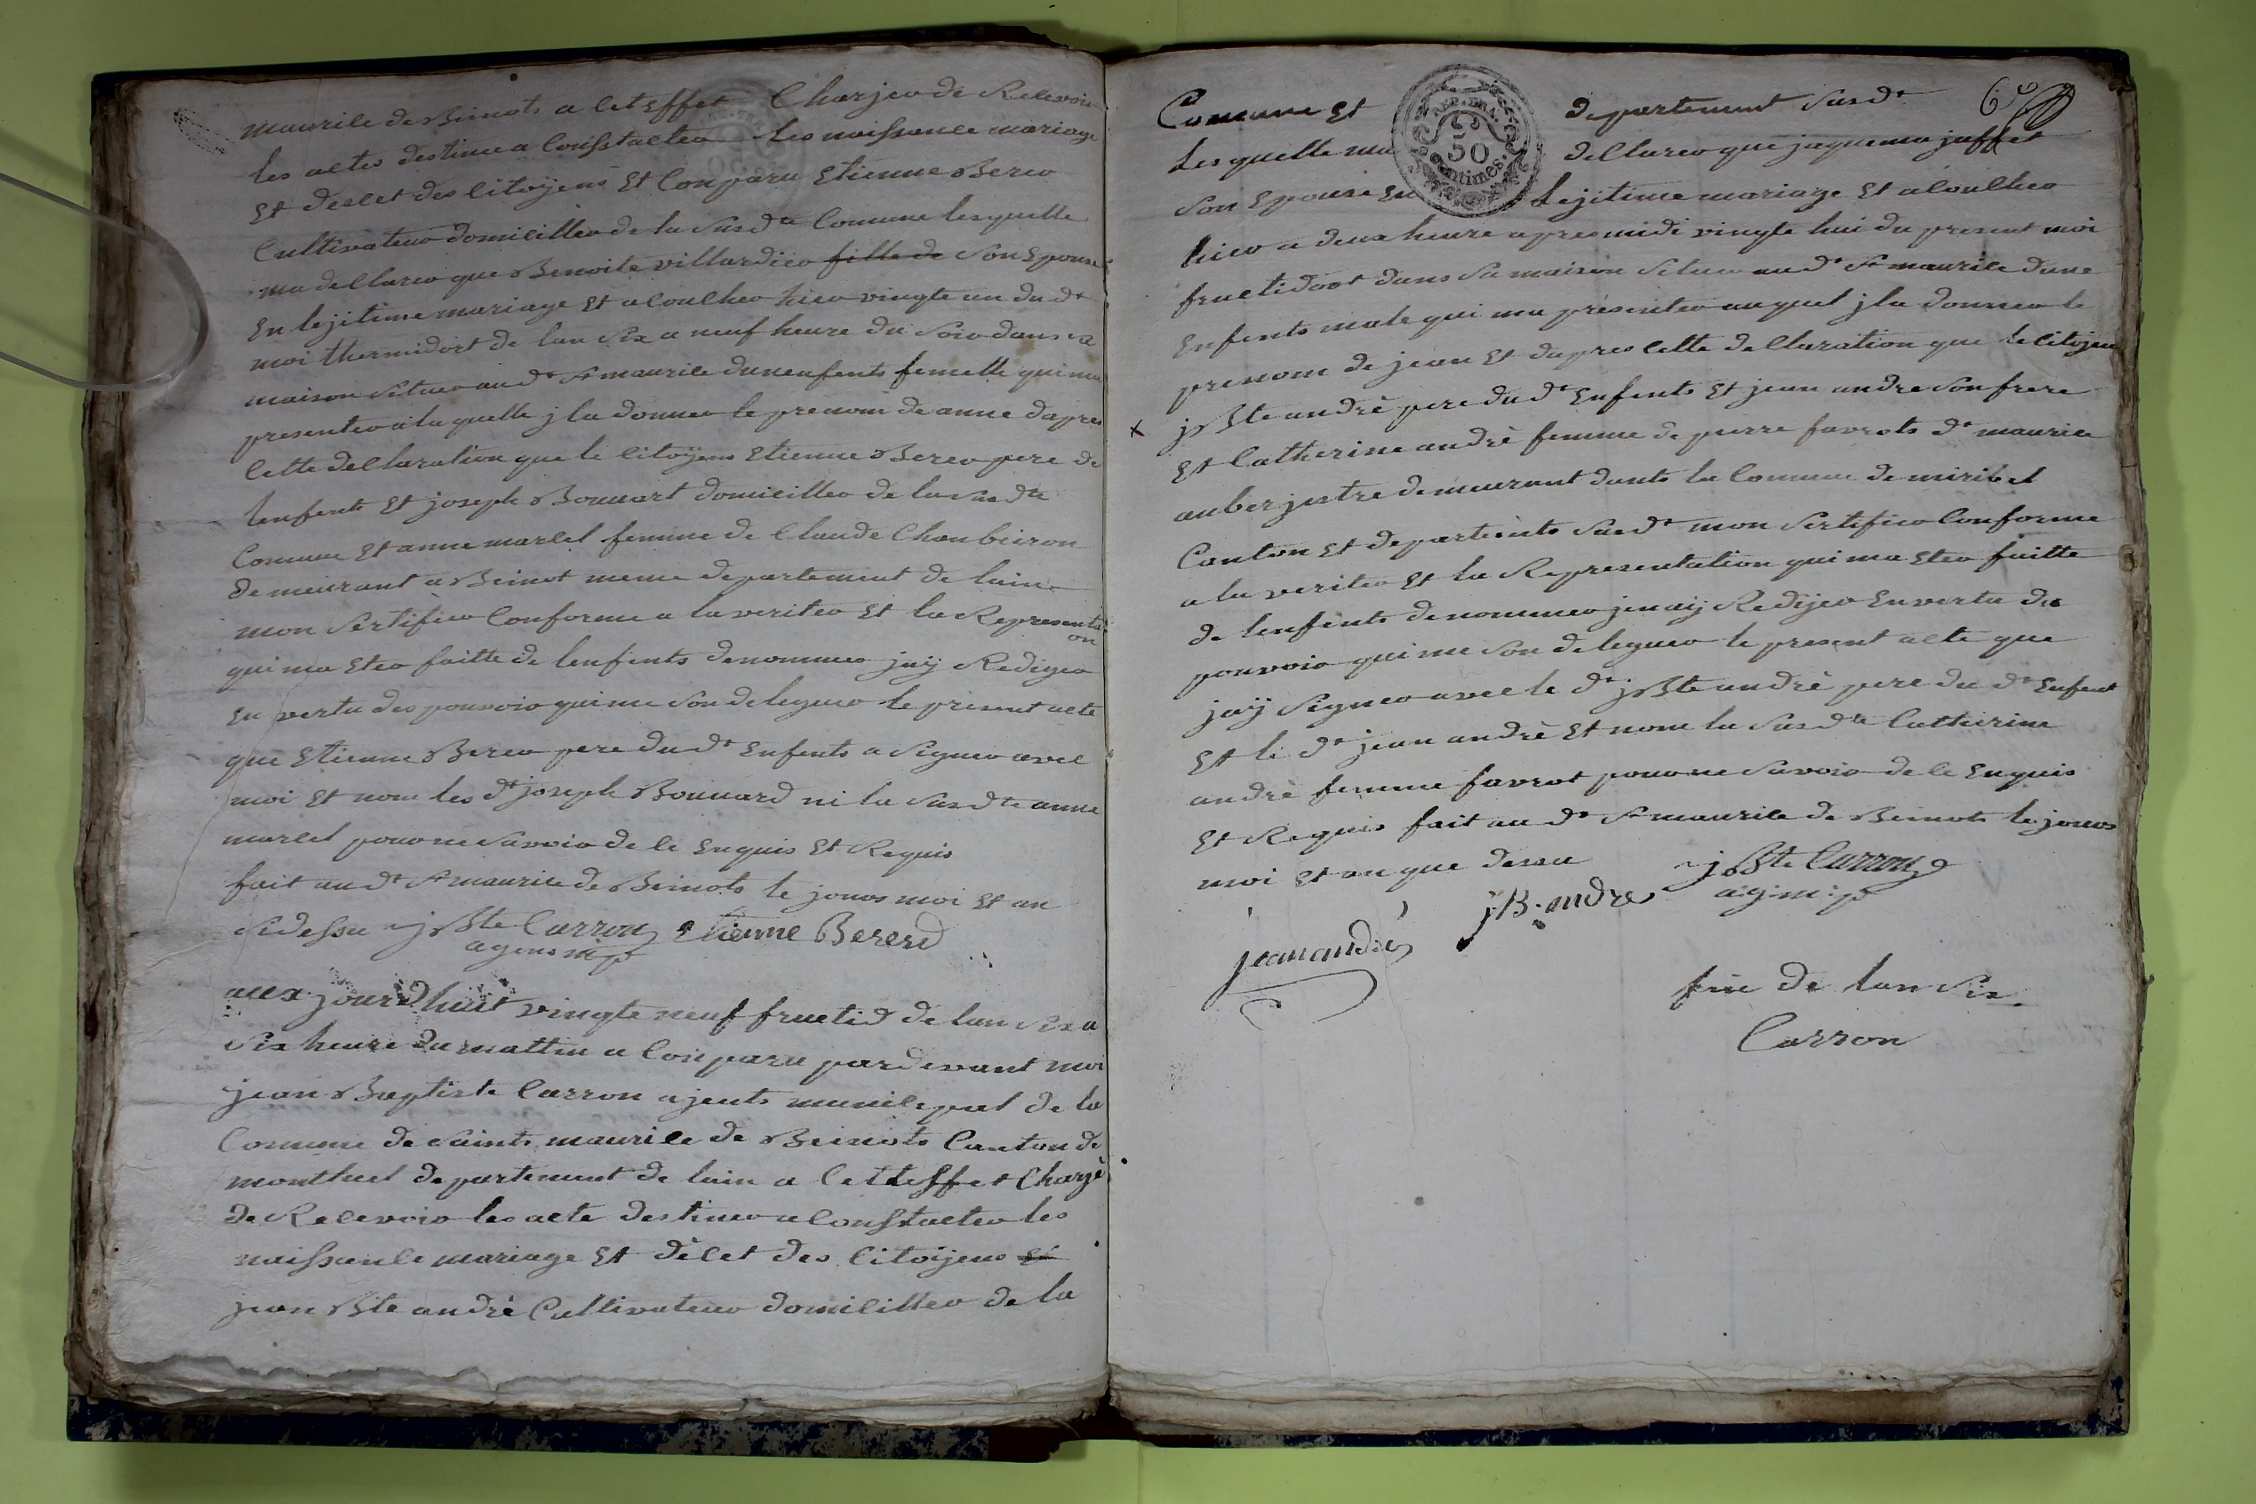 maurile de Beinots a Cet Effet Charjeo de Relevoir
les actes destineo a Consstacteo les naissance mariage
Et deslet des Citoÿens Et Conparu Etienne Bereo
Cultivateuo domicilleo de la susdte Comune lesquelle
ma declareo que Benoite villardieo fille de son Epouse
En lejitime mariage Et acoucheo hieo vingte un du dt
moi thermidort de lan six a neuf heure du soio dans sa
maison situeo au dt st maurile dunenfents femelle qui ma
presenteo a la quelle j la donneo le prenom de anne dapres
Cette declaration que le Citoÿens Etienne Bereo pere de
lenfents Et joseph Bonnart domicilleo de la susdte
Comune Et anne marlet femme de Claude Chanbeiron
demeurant a Beinot meme departement de lain
mon Sertifieo Conforme a la veriteo Et la Representa
on
qui ma Eteo faitte de lenfents denommeo jaÿ Redigeo
En vertu des pouvoio qui me son delegueo le present acte
que Etienne Bereo pere du dt Enfents a signeo avec
moi Et nom les dt joseph Bonnard ni la susdte anne
marlet pouo ne savoio de le Enquis Et Requis
fait au dt st maurile de Beinots le jouos moi Et an
sidessu j Bte Carron Etienne Bererd
agens mp
aux jourdhuit vingte neuf fructid de lan six a
six heure du mattin a Conparu pardevant moi
jean Baptiste Carron ajents municipal de la
Comune de saints maurile de Beinots Canton de
montluel departement de lain a Cet Effet Chargè
de Relevoio les acte destineo a Consstacteo les
naissanle mariage Et dèlet des Citoÿens Et
jean Bte andrè Cultivateuo domicilleo de la
Comune Et departement susdt 60
Lesquelle ma declareo que jaquema jaffet
son Epouse En lejitime mariage Et acoulheo
hieo a deux heure apres midi vingte hui du present moi
fructidoot dans sa maison situeo au dt st maurile dune
Enfents male qui ma presenteo auquel j la donneo le
prenom de jean Et dapres Cette declaration que le Citoÿen
j Bte andrè pere du dt Enfents Et jean andre son frere
x Et Catherine andrè femme de pierre favrots dt maurile
auberjistre demeurant dants la Comune de miribel
Canton Et departeints susdt mon Sertifieo Conforme
a la veriteo Et la Representation qui ma Eteo faitte
de lenfents denommeo jenaÿ Redijeo En vertu des
pouvoio qui me son delegueo le present acte que
jaÿ signeo avec le dt j Bte andrè pere du dt Enfent
Et le dt jean andrè Et nom la susdte Catherine
andrè femme favrot pouo ne savoio de le Enquis
Et Requis fait au dt st maurile de Beinots le jouos
moi Et an que dessu j Bte Carron
j.B. andre agmp
jean andre
fin de lan six
Carron
REP. FRA.
50
centimes.